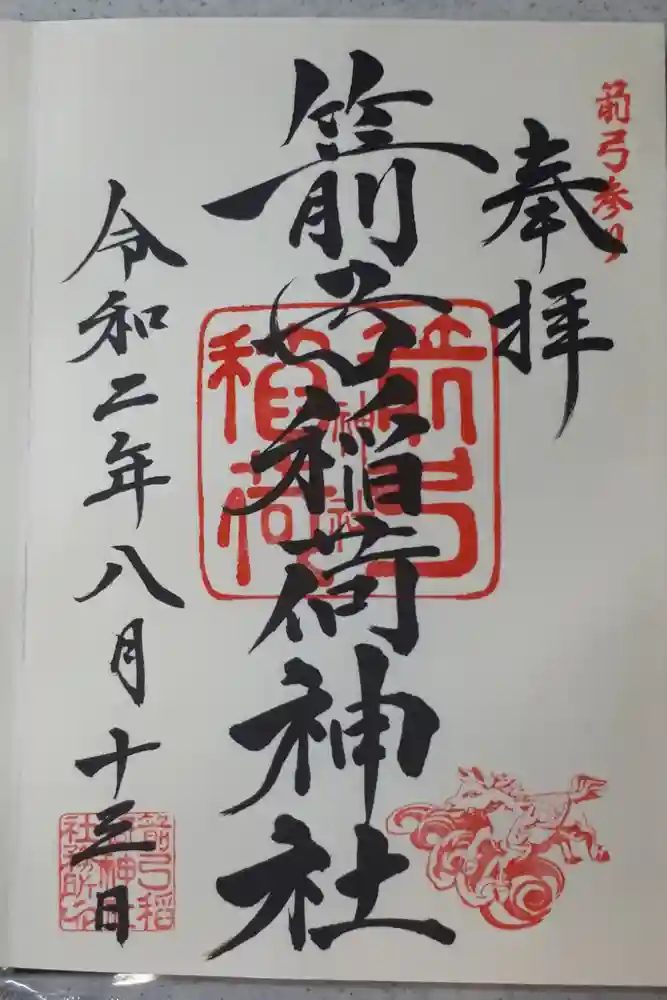 箭弓参り
奉拝
箭弓稲荷神社
箭弓稲荷神社
令和二年八月十三日
箭弓稲荷神社社務所之印